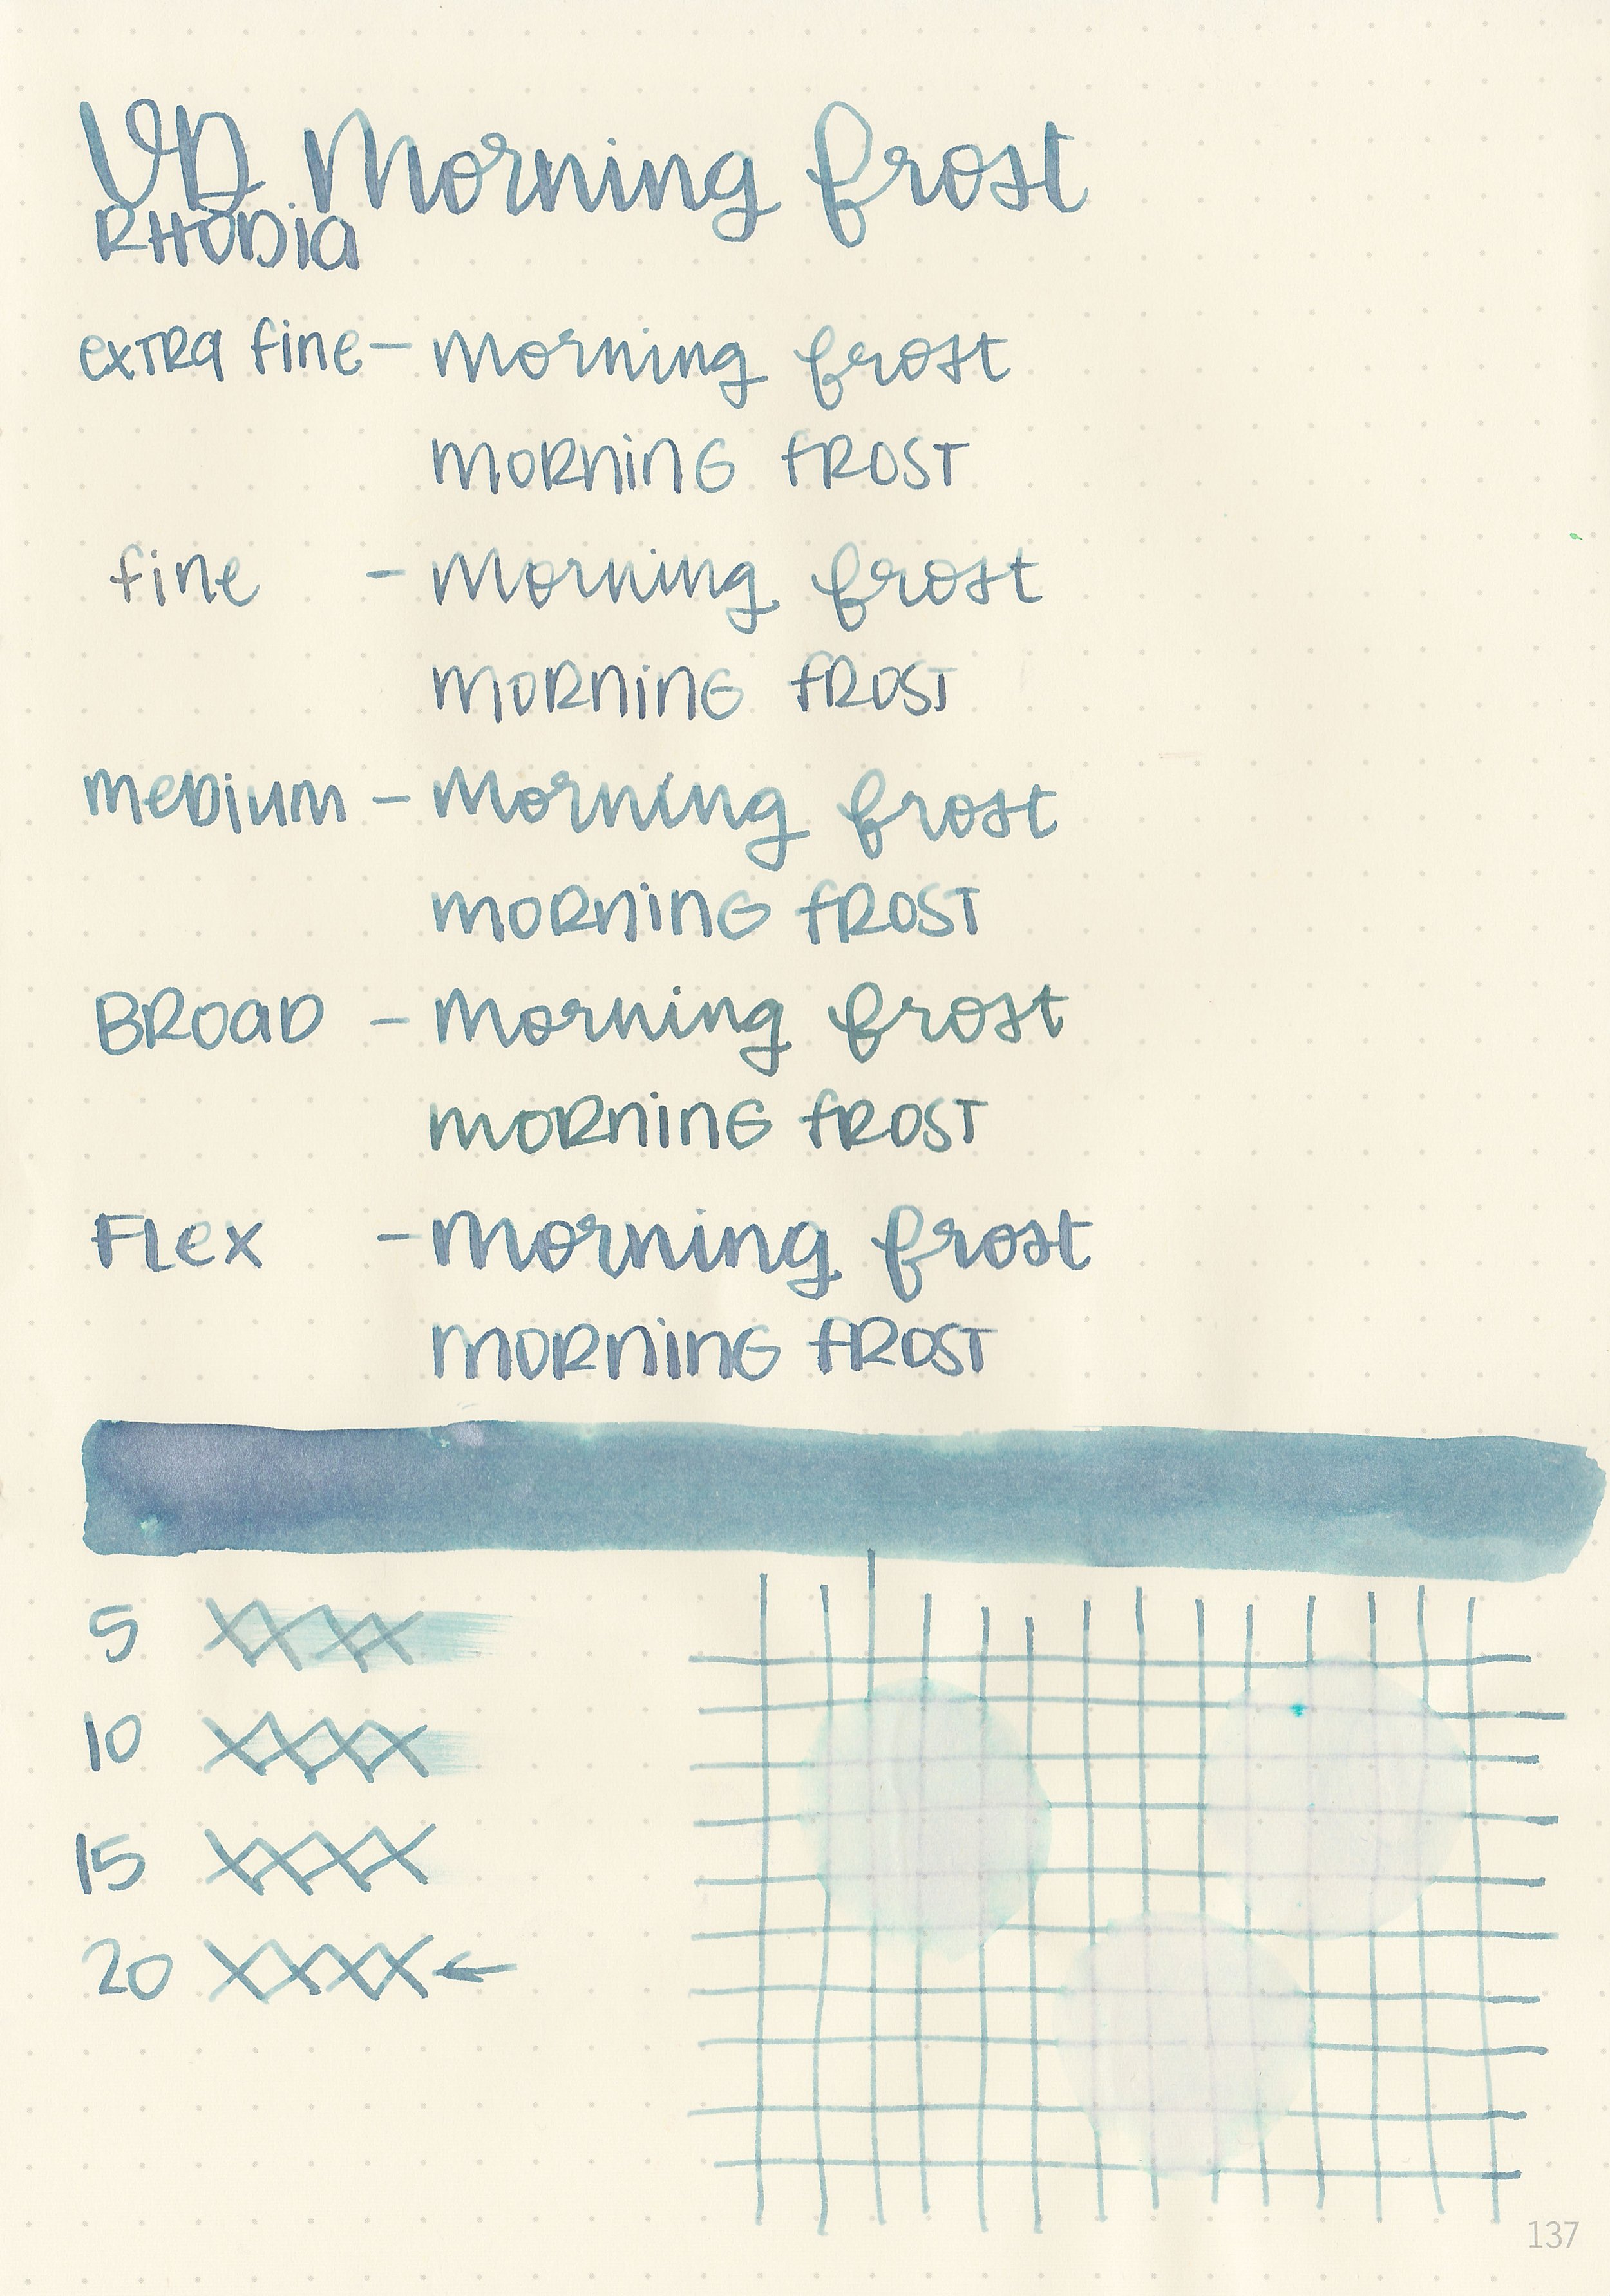 VD Morning frost
RHODIA
exTRa fine - Morning frost
mORninG fROST
fine - Morning frost
mORninG fROST
meDium - Morning frost
mORninG fROST
BROaD - Morning frost
mORninG fROST
FLex - Morning frost
mORninG fROST
5
10
15
20 ←
137